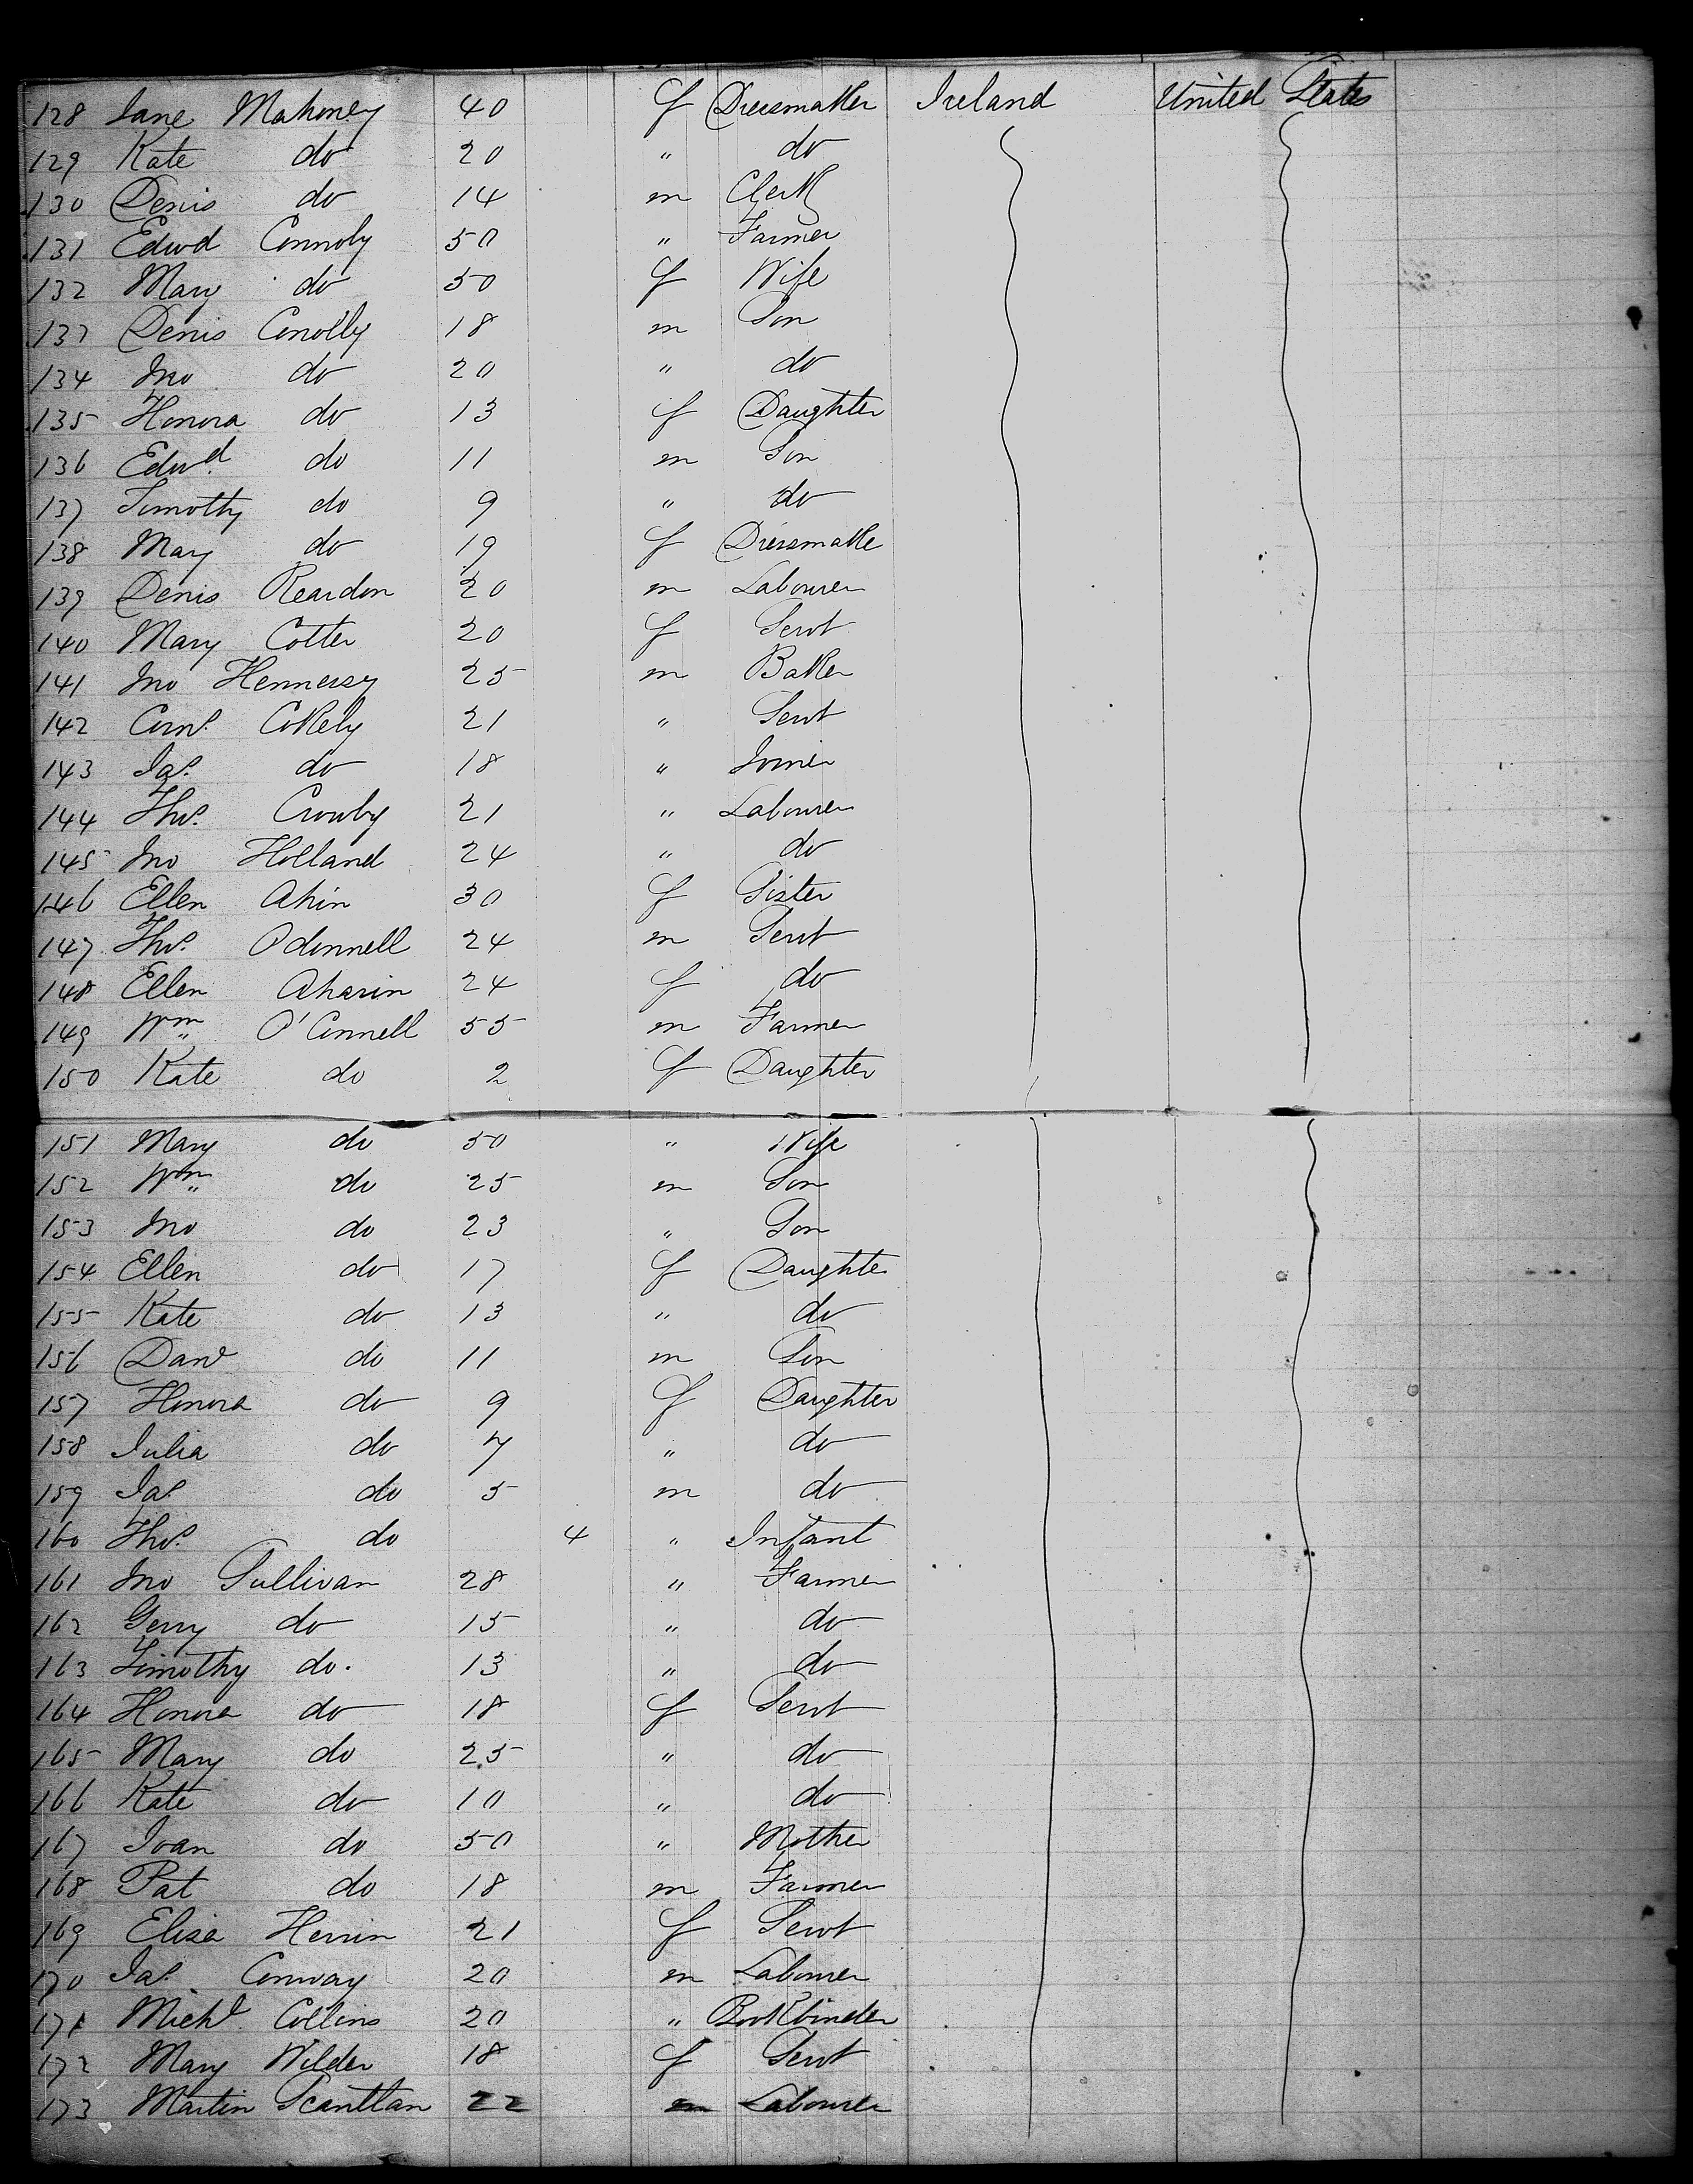 128 Jane Mahoney 40 f Dressmaker Ireland United States
129 Kate do 20 " do
130 Denis do 14 m Clerk
131 Edwd Connoly 50 " Farmer
132 Mary do 50 f Wife
133 Denis Conolly 18 m Son
134 Jno do 20 " do
135 Honora do 13 f Daughter
136 Edwd. do 11 m Son
137 Timothy do 9 " do
138 Mary do 19 f Dressmake
139 Denis Reardon 20 m Labourer
140 Mary Cotter 20 f Servt
141 Jno Hennessy 25 m Baker
142 Corns. Cokely 21 " Servt
143 Jas. do 18 " Joiner
144 Thos. Crowly 21 " Labourer
145 Jno Holland 24 " do
146 Ellen Ahin 30 f Sister
147 Thos. Odonnell 24 m Servt
148 Ellen Aharin 24 f do
149 Wm O'Connell 55 m Farmer
150 Kate do 2 f Daughter
151 Mary do 50 " Wife
152 Wm do 25 m Son
153 Jno do 23 " Son
154 Ellen do 17 f Daughte
155 Kate do 13 " do
156 Danl do 11 m Son
157 Honora do 9 f Daughter
158 Julia do 7 " do
159 Jas. do 5 m do
160 Thos. do 4 " Infant
161 Jno Sullivan 28 " Farmer
162 Gerry do 15 " do
163 Timothy do. 13 " do
164 Honora do 18 f Servt
165 Mary do 25 " do
166 Kate do 10 " do
167 Joan do 50 " Mother
168 Pat do 18 m Farmer
169 Eliza Herrin 21 f Servt
170 Jas. Conway 20 m Labourer
171 Michl. Collins 20 " Bookbinder
172 Mary Wilder 18 f Servt
173 Martin Scanttan 22 m Labourer